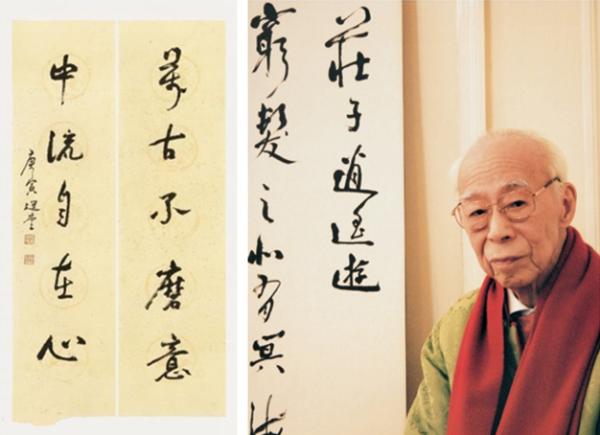 萬古不磨意
中流自在心
庚寅 選堂
莊子逍遙遊
窮髮之北有冥海